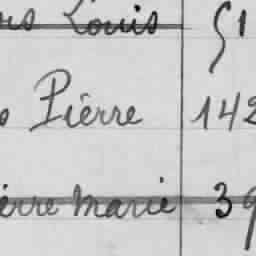 Louis 51
Pierre 142
erre Marie 39